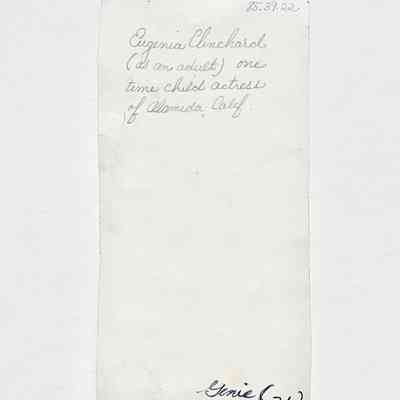 85.39.22
Eugenia Clinchard
(as an adult) one
time child actress
of Alameda, Calif.
Genie (